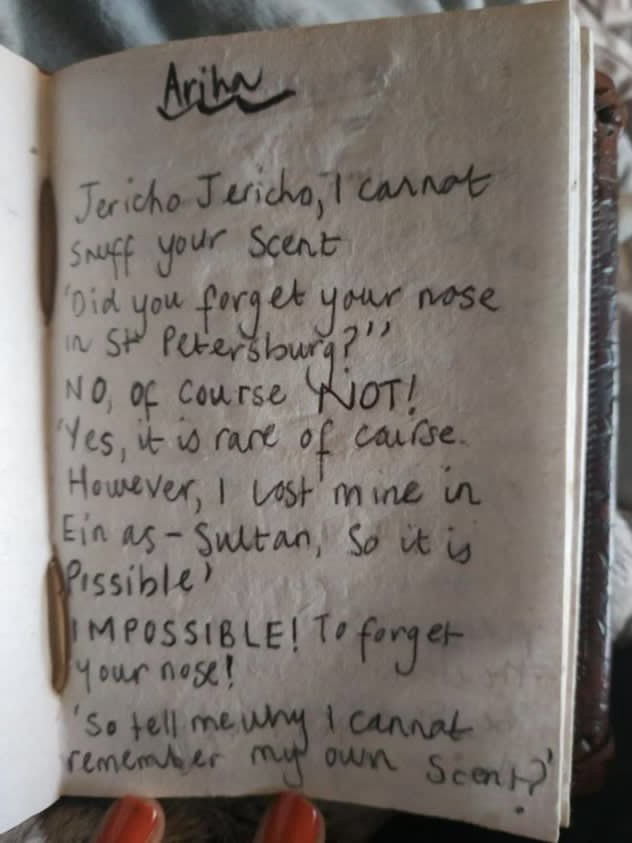 Ariha
Jericho Jericho, I cannot
snuff your scent
'Did you forget your nose
in St Petersburg?''
NO, of course NOT!
'Yes, it is rare of course.
However, I lost mine in
Ein as-Sultan, So it is
Pissible'
IMPOSSIBLE! To forget
your nose!
'So tell me why I cannot
remember my own Scent?'